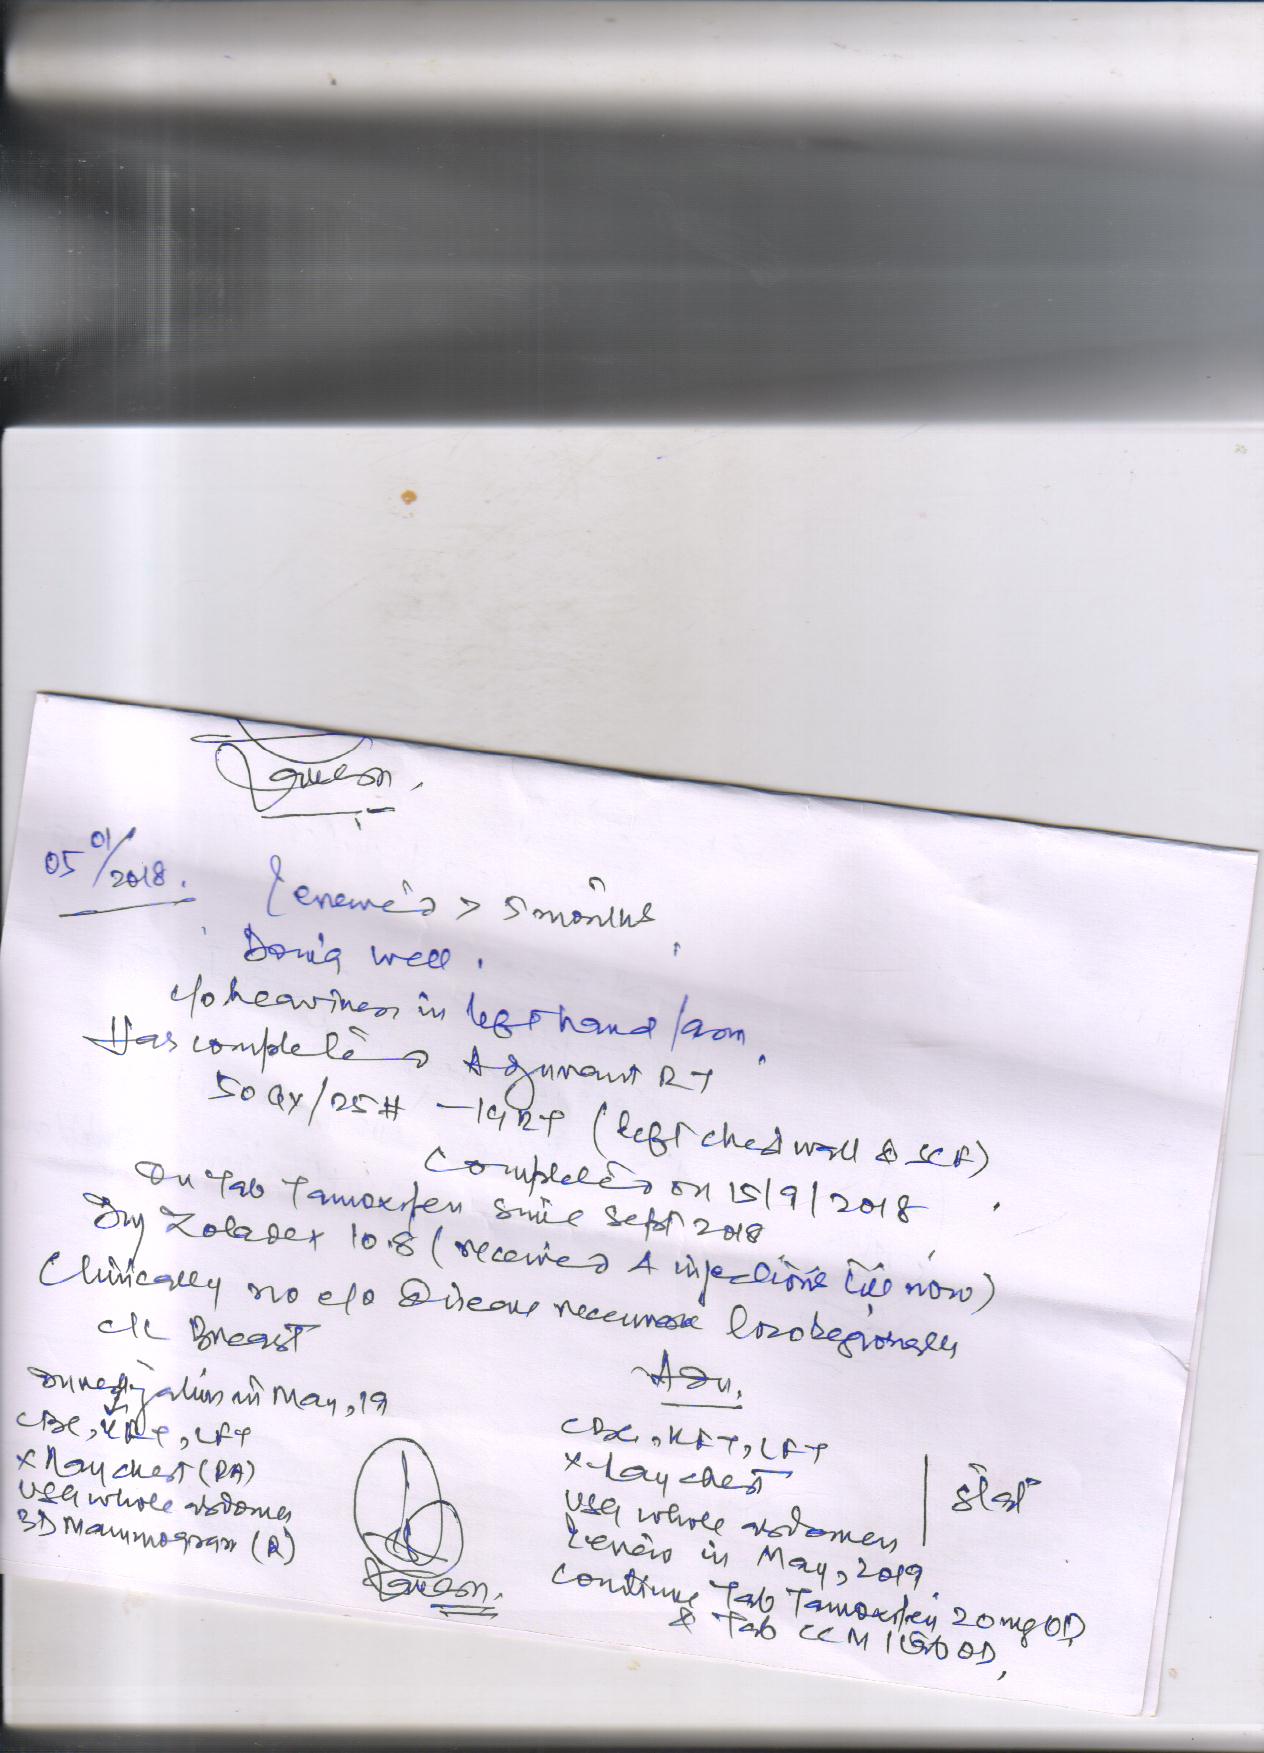 05/01/2018.
Reviewed > 5 months
Doing well.
c/o heaviness in left hand/arm.
Has completed Adjuvant RT
50 Gy/25# – IGRT (left chest wall & SCF)
Completed on 15/9/2018.
On Tab Tamoxifen since Sept 2018
Inj Zoladex 10.8 (received 4 injections till now)
Clinically no e/o Disease recurrence locoregionally
c/l Breast
Investigations in May, 19
CBC, KFT, LFT
X Ray chest (PA)
USG whole abdomen
3D Mammogram (R)
Adv.
CBC, KFT, LFT
X-ray chest
USG whole abdomen
Review in May, 2019.
Continue Tab Tamoxifen 20mg OD
& Tab CCM 1 tab OD,